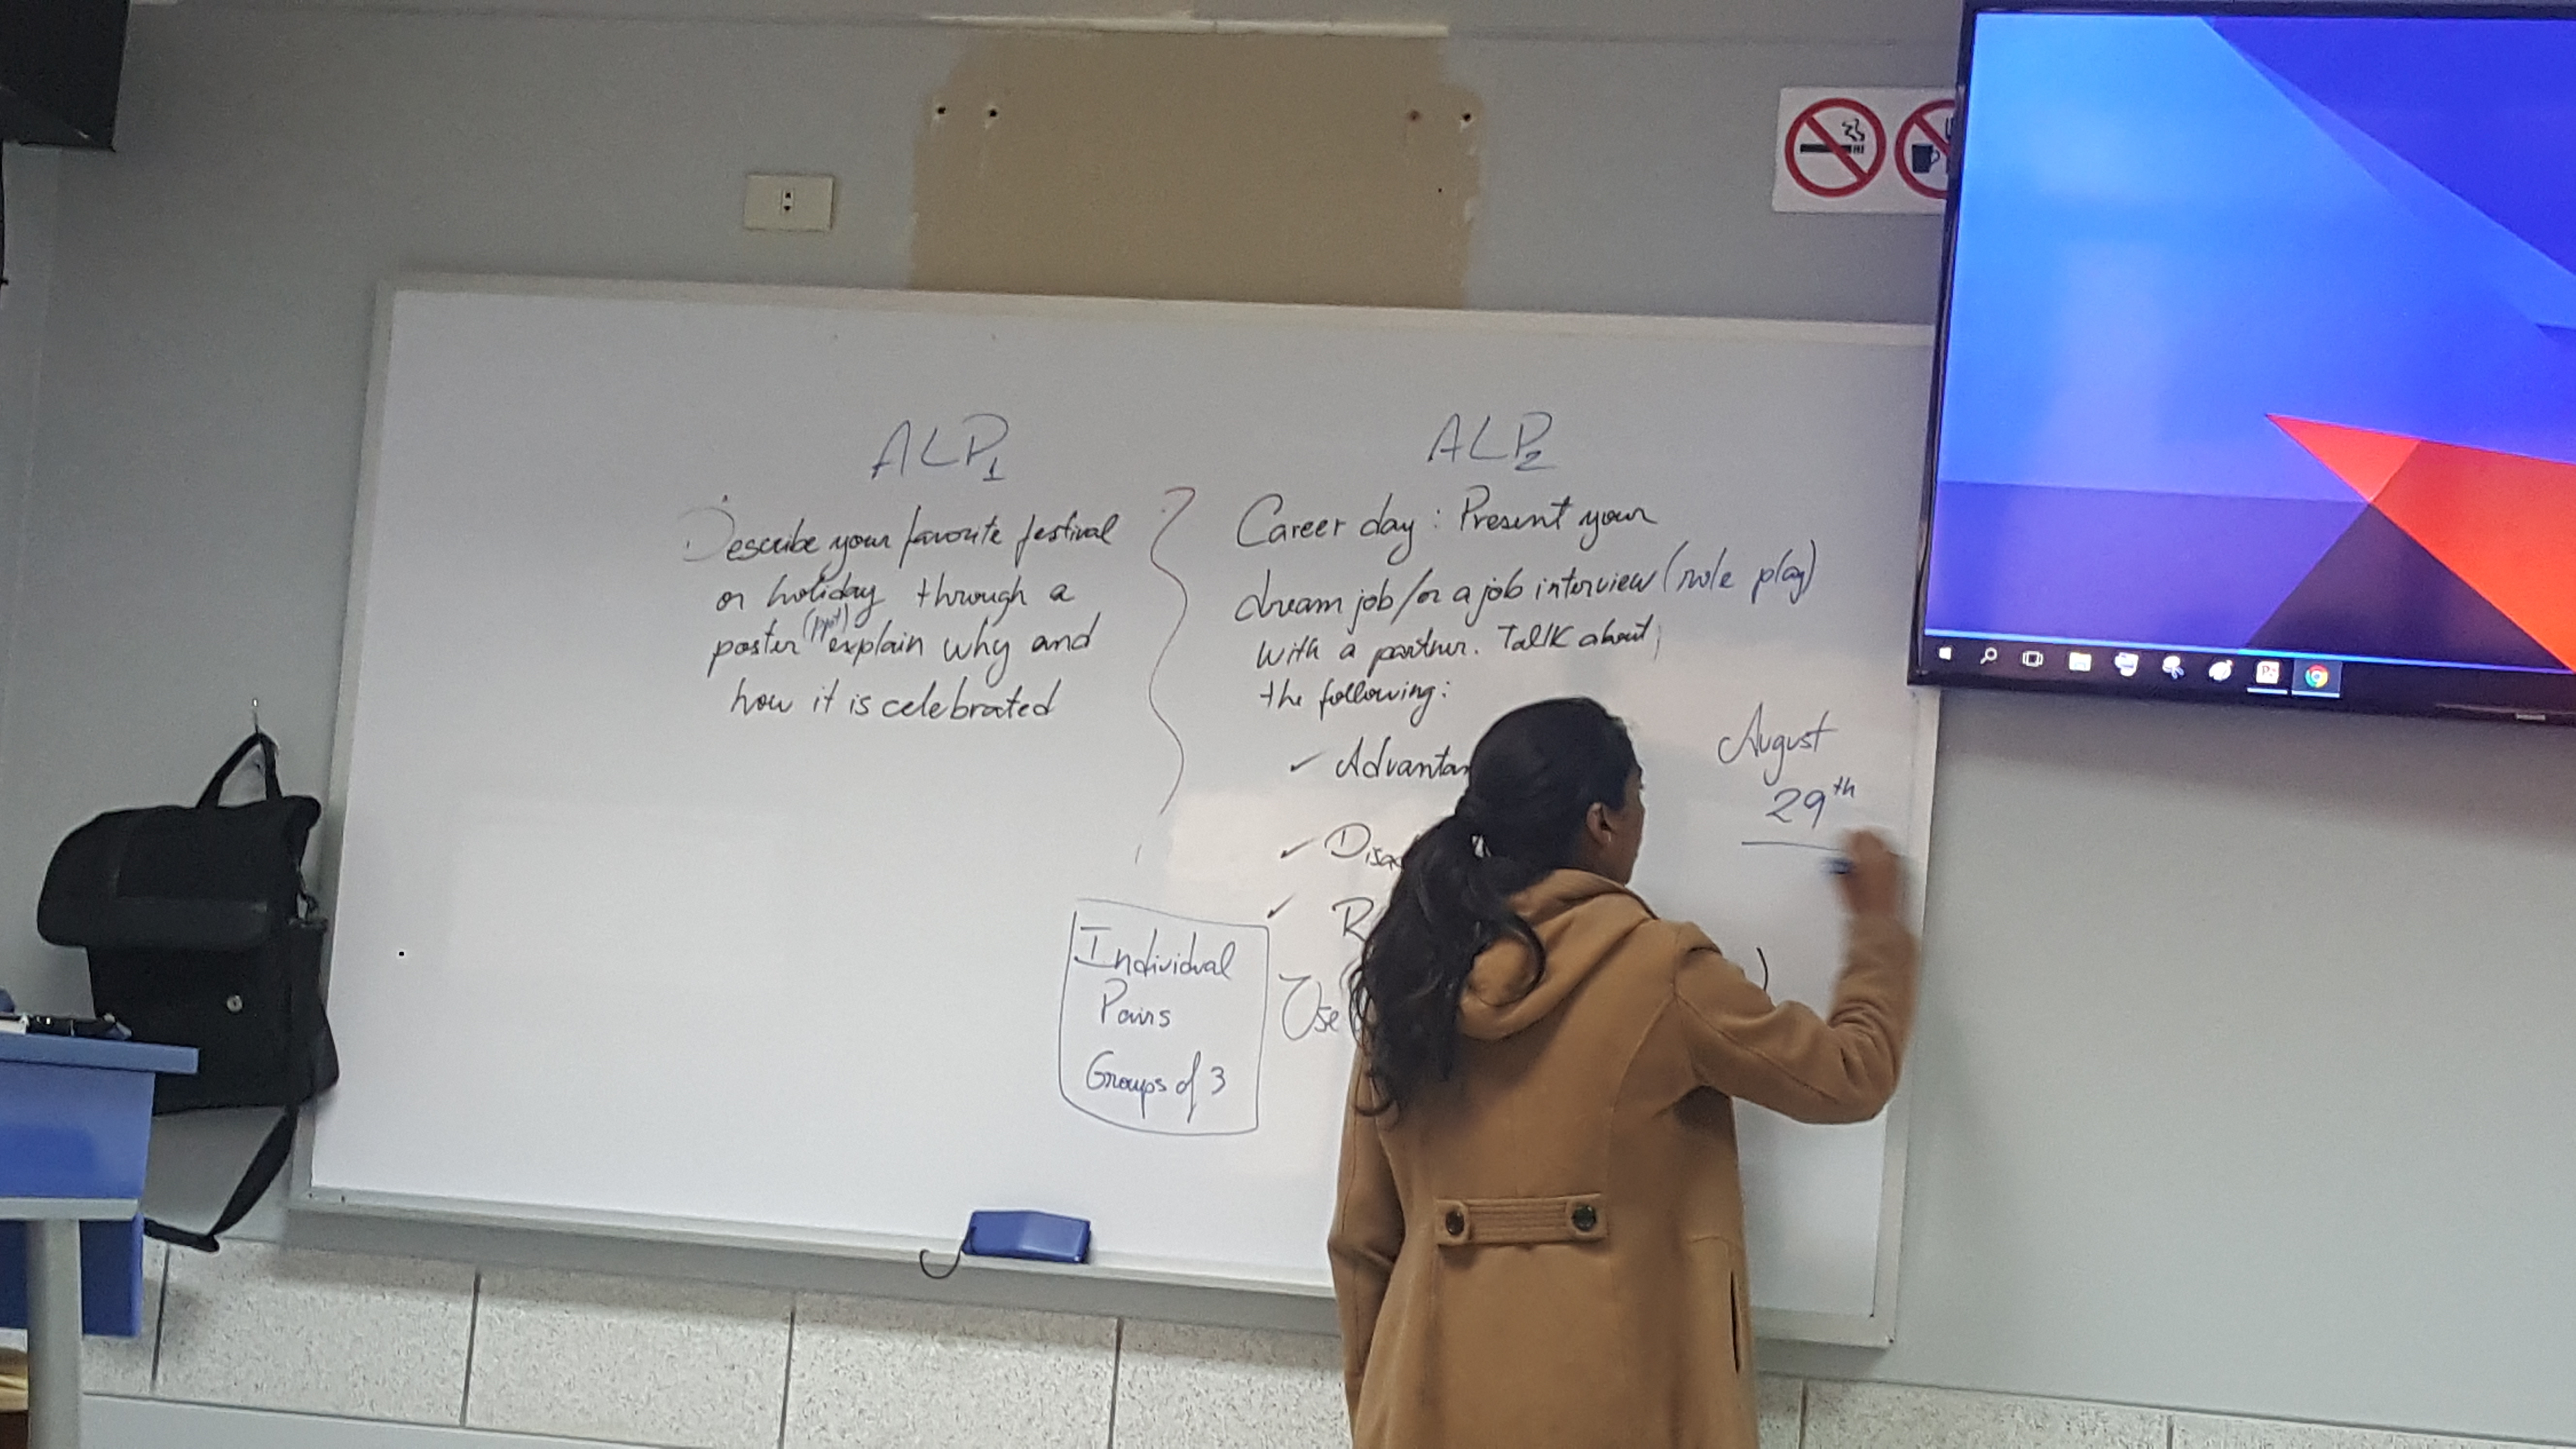 ALP1
Describe your favorite festival
or holiday through a
poster (ppt) explain why and
how it is celebrated
ALP2
Career day: Present your
dream job/or a job interview (role play)
with a partner. Talk about
the following:
✓ Advantag
✓ Disa
✓ R
Use
August
29th
Individual
Pairs
Groups of 3